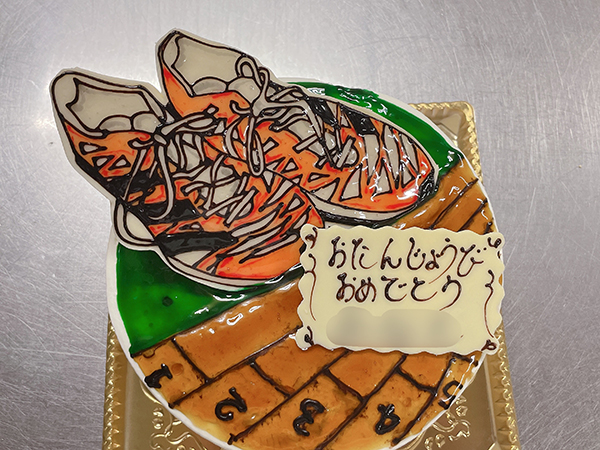 おたんじょうび
おめでとう
1 2 3 4 5